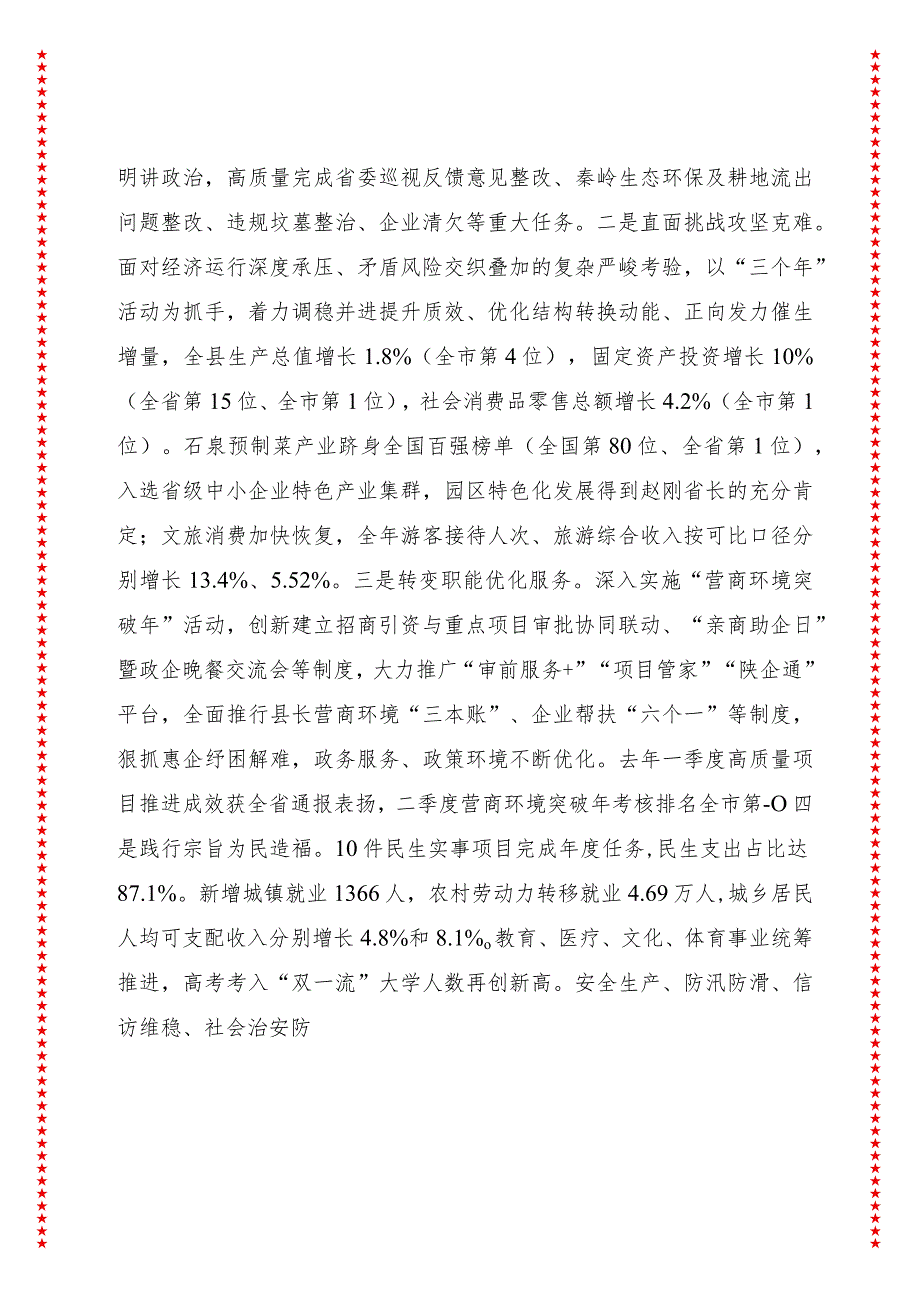 明讲政治，高质量完成省委巡视反馈意见整改、秦岭生态环保及耕地流出
问题整改、违规坟墓整治、企业清欠等重大任务。二是直面挑战攻坚克难。
面对经济运行深度承压、矛盾风险交织叠加的复杂严峻考验，以“三个年”
活动为抓手，着力调稳并进提升质效、优化结构转换动能、正向发力催生
增量，全县生产总值增长 1.8%（全市第 4 位），固定资产投资增长 10%
（全省第 15 位、全市第 1 位），社会消费品零售总额增长 4.2%（全市第 1
位）。石泉预制菜产业跻身全国百强榜单（全国第 80 位、全省第 1 位），
入选省级中小企业特色产业集群，园区特色化发展得到赵刚省长的充分肯
定；文旅消费加快恢复，全年游客接待人次、旅游综合收入按可比口径分
别增长 13.4%、5.52%。三是转变职能优化服务。深入实施“营商环境突
破年”活动，创新建立招商引资与重点项目审批协同联动、“亲商助企日”
暨政企晚餐交流会等制度，大力推广“审前服务+”“项目管家”“陕企通”
平台，全面推行县长营商环境“三本账”、企业帮扶“六个一”等制度，
狠抓惠企纾困解难，政务服务、政策环境不断优化。去年一季度高质量项
目推进成效获全省通报表扬，二季度营商环境突破年考核排名全市第-O 四
是践行宗旨为民造福。10 件民生实事项目完成年度任务,民生支出占比达
87.1%。新增城镇就业 1366 人，农村劳动力转移就业 4.69 万人,城乡居民
人均可支配收入分别增长 4.8%和 8.1%o教育、医疗、文化、体育事业统筹
推进，高考考入“双一流”大学人数再创新高。安全生产、防汛防滑、信
访维稳、社会治安防